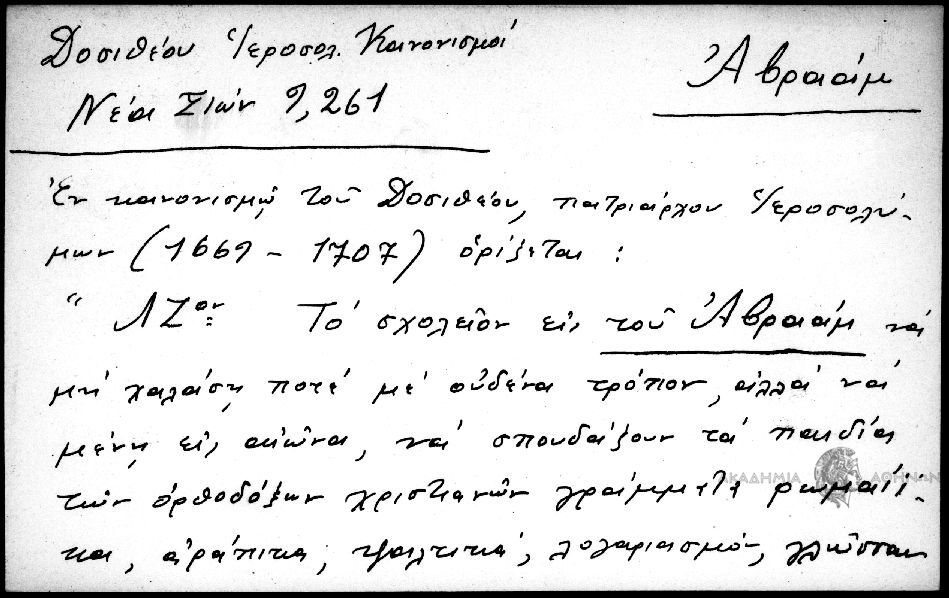 Δοσιθέου Ἱεροσολ. Κανονισμοί
Ἀβραάμ
Νέα Σιών 9, 261
Ἐν κανονισμῷ τοῦ Δοσιθέου, πατριάρχου Ἱεροσολύ-
μων (1669 - 1707) ὁρίζεται :
“ ΛΖον Τό σχολεῖον εἰς τοῦ Ἀβραάμ νά
μή χαλάσῃ ποτέ μέ οὐδένα τρόπον, ἀλλά νά
μένῃ εἰς αἰῶνα, νά σπουδάζουν τά παιδία
τῶν ὀρθοδόξων χριστιανῶν γράμματα ρωμαίι-
κα, ἀράπικα, ψαλτικά, λογαριασμόν, γλῶσσαν
ΑΚΑΔΗΜΙΑ ΑΘΗΝΩΝ